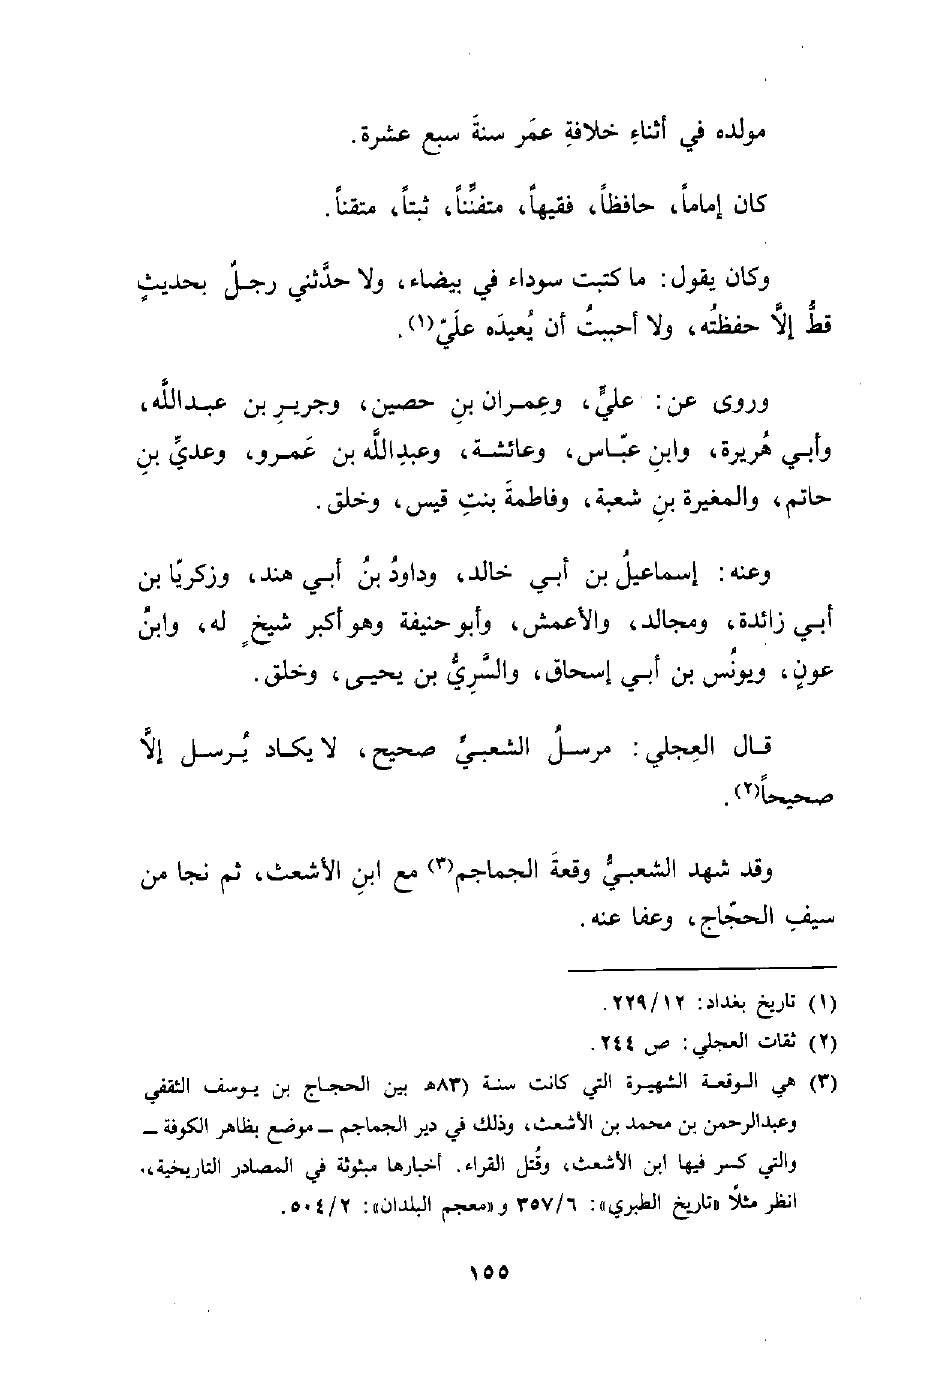 مولده في أثناءِ خلافةِ عمَر سنةَ سبع عشرة.
كان إماماً، حافظاً، فقيهاً، متفنِّناً، ثبتاً، متقناً.
وكان يقول: ما كتبت سوداء في بيضاء، ولا حدَّثني رجلٌ بحديثٍ
قطُّ إلاَّ حفظتُه، ولا أحببتُ أن يُعيدَه عليّ(١).
وروى عن: عليٍّ، وعِمران بنِ حصين، وجريرِ بن عبدالله،
وأبي هُريرة، وابنِ عبّاس، وعائشة، وعبدِالله بن عَمرو، وعديِّ بنِ
حاتم، والمغيرة بنِ شعبة، وفاطمةَ بنتِ قيس، وخلق.
وعنه: إسماعيلُ بن أبي خالد، وداودُ بنُ أبي هند، وزكريّا بن
أبي زائدة، ومجالد، والأعمش، وأبو حنيفة وهو أكبر شيخٍ له، وابنُ
عونٍ، ويونُس بن أبي إسحاق، والسَّرِيُّ بن يحيى، وخلق.
قال العِجلي: مرسلُ الشعبيِّ صحيح، لا يكاد يُرسل إلاَّ
صحيحاً(٢).
وقد شهد الشعبيُّ وقعةَ الجماجم(٣) مع ابنِ الأشعث، ثم نجا من
سيفِ الحجّاج، وعفا عنه.
(١) تاريخ بغداد: ٢٢٩/١٢.
(٢) ثقات العجلي: ص ٢٤٤.
(٣) هي الوقعة الشهيرة التي كانت سنة (٨٣هـ بين الحجاج بن يوسف الثقفي
وعبدالرحمن بن محمد بن الأشعث، وذلك في دير الجماجم ــ موضع بظاهر الكوفة ــ
والتي كسر فيها ابن الأشعث، وقُتل القراء. أخبارها مبثوثة في المصادر التاريخية،.
انظر مثلًا «تاريخ الطبري»: ٣٥٧/٦ و «معجم البلدان»: ٥٠٤/٢.
١٥٥